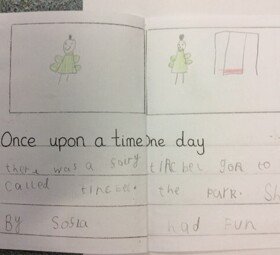 Once upon a time
there was a fairy
called tincbel.
By Sofia
One day
tincbel gon to
the park. Sh
had fun